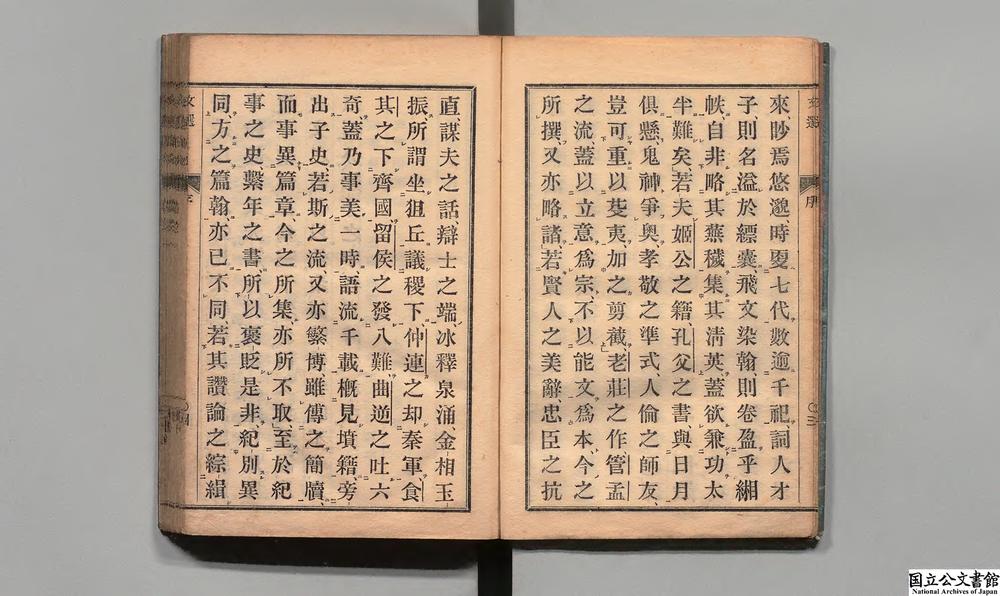 來眇焉悠邈、時更七代、數逾千祀、詞人才
子、則名溢於縹囊、飛文染翰、則卷盈乎緗
帙、自非略其蕪穢、集其淸英、蓋欲兼功太
半難矣、若夫姬公之籍、孔父之書、與日月
俱懸、鬼神爭奧、孝敬之準式、人倫之師友、
豈可重以芟夷、加之剪截、老莊之作、管孟
之流、蓋以立意爲宗、不以能文爲本、今之
所撰、又亦略諸、若賢人之美辭、忠臣之抗
文選
序
直、謀夫之話、辯士之端、冰釋泉涌、金相玉
振、所謂坐狙丘、議稷下、仲連之却秦軍、食
其之下齊國、留侯之發八難、曲逆之吐六
奇、蓋乃事美一時、語流千載、概見墳籍、旁
出子史、若斯之流、又亦繁博、雖傳之簡牘、
而事異篇章、今之所集、亦所不取、至於紀
事之史、繫年之書、所以褒貶是非、紀別異
同、方之篇翰、亦已不同、若其讚論之綜緝
文選
国立公文書館
National Archives of Japan